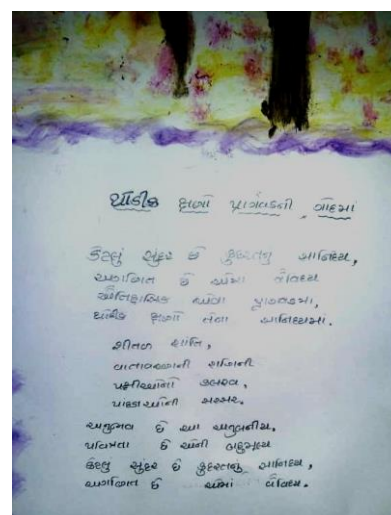 થોડીક ક્ષણો પ્રાગવડની ગોદમાં
કેટલું સુંદર છે કુદરતનું સાનિધ્ય,
અગણિત છે એમાં વૈવિધ્ય
ઐતિહાસિક એવા પ્રાગવડમા,
થોડીક ક્ષણો તેના સાનિધ્યમાં.
શીતળ શાંતિ,
વાતાવરણની
પક્ષીઓનો કલરવ,
પાંદડાઓની સરસર.
અનુભવ છે આ
પવિત્રતા છે એની બહુમૂલ્ય
કેટલું સુંદર છે કુદરતનું સાનિધ્ય,
અગણિત છે એમાં વૈવિધ્ય.